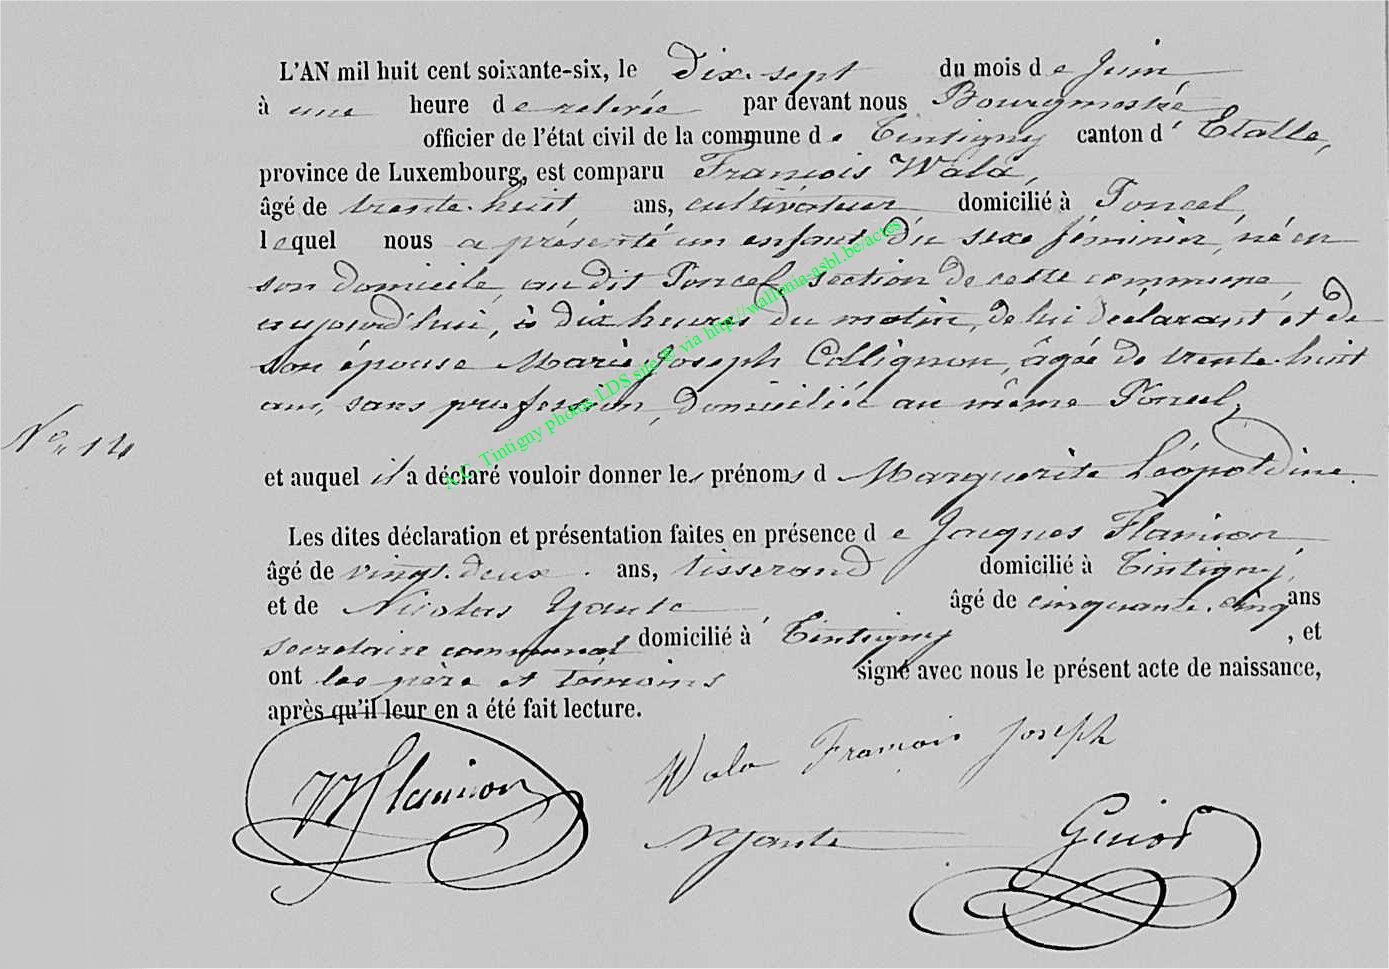 L'AN mil huit cent soixante-six, le Dix-sept du mois de Juin,
à une heure de relevée par devant nous Bourgmestre
officier de l'état civil de la commune de Tintigny canton d' Etalle,
province de Luxembourg, est comparu François Wala,
âgé de trente-huit ans, cultivateur domicilié à Poncel,
lequel nous a présenté un enfant du sexe féminin, né en
son domicile, au dit Poncel, section de cette commune,
aujourd'hui, à dix heures du matin, de lui déclarant et de
son épouse Marie Joseph Collignon, âgée de trente-huit
ans, sans profession, domiciliée au même Poncel,
N° 14
et auquel il a déclaré vouloir donner les prénoms d Marguerite Léopoldine.
Les dites déclaration et présentation faites en présence de Jacques Flamion,
âgé de vingt-deux ans, tisserand domicilié à Tintigny,
et de Nicolas Yante, âgé de cinquante-cinq ans
secrétaire communal domicilié à Tintigny, et
ont les père et témoins signé avec nous le présent acte de naissance,
après qu'il leur en a été fait lecture.
Flamion Wala François Joseph
NYante
A.G. Tintigny photos LDS site @ via http://wallonia-asbl.be/actes